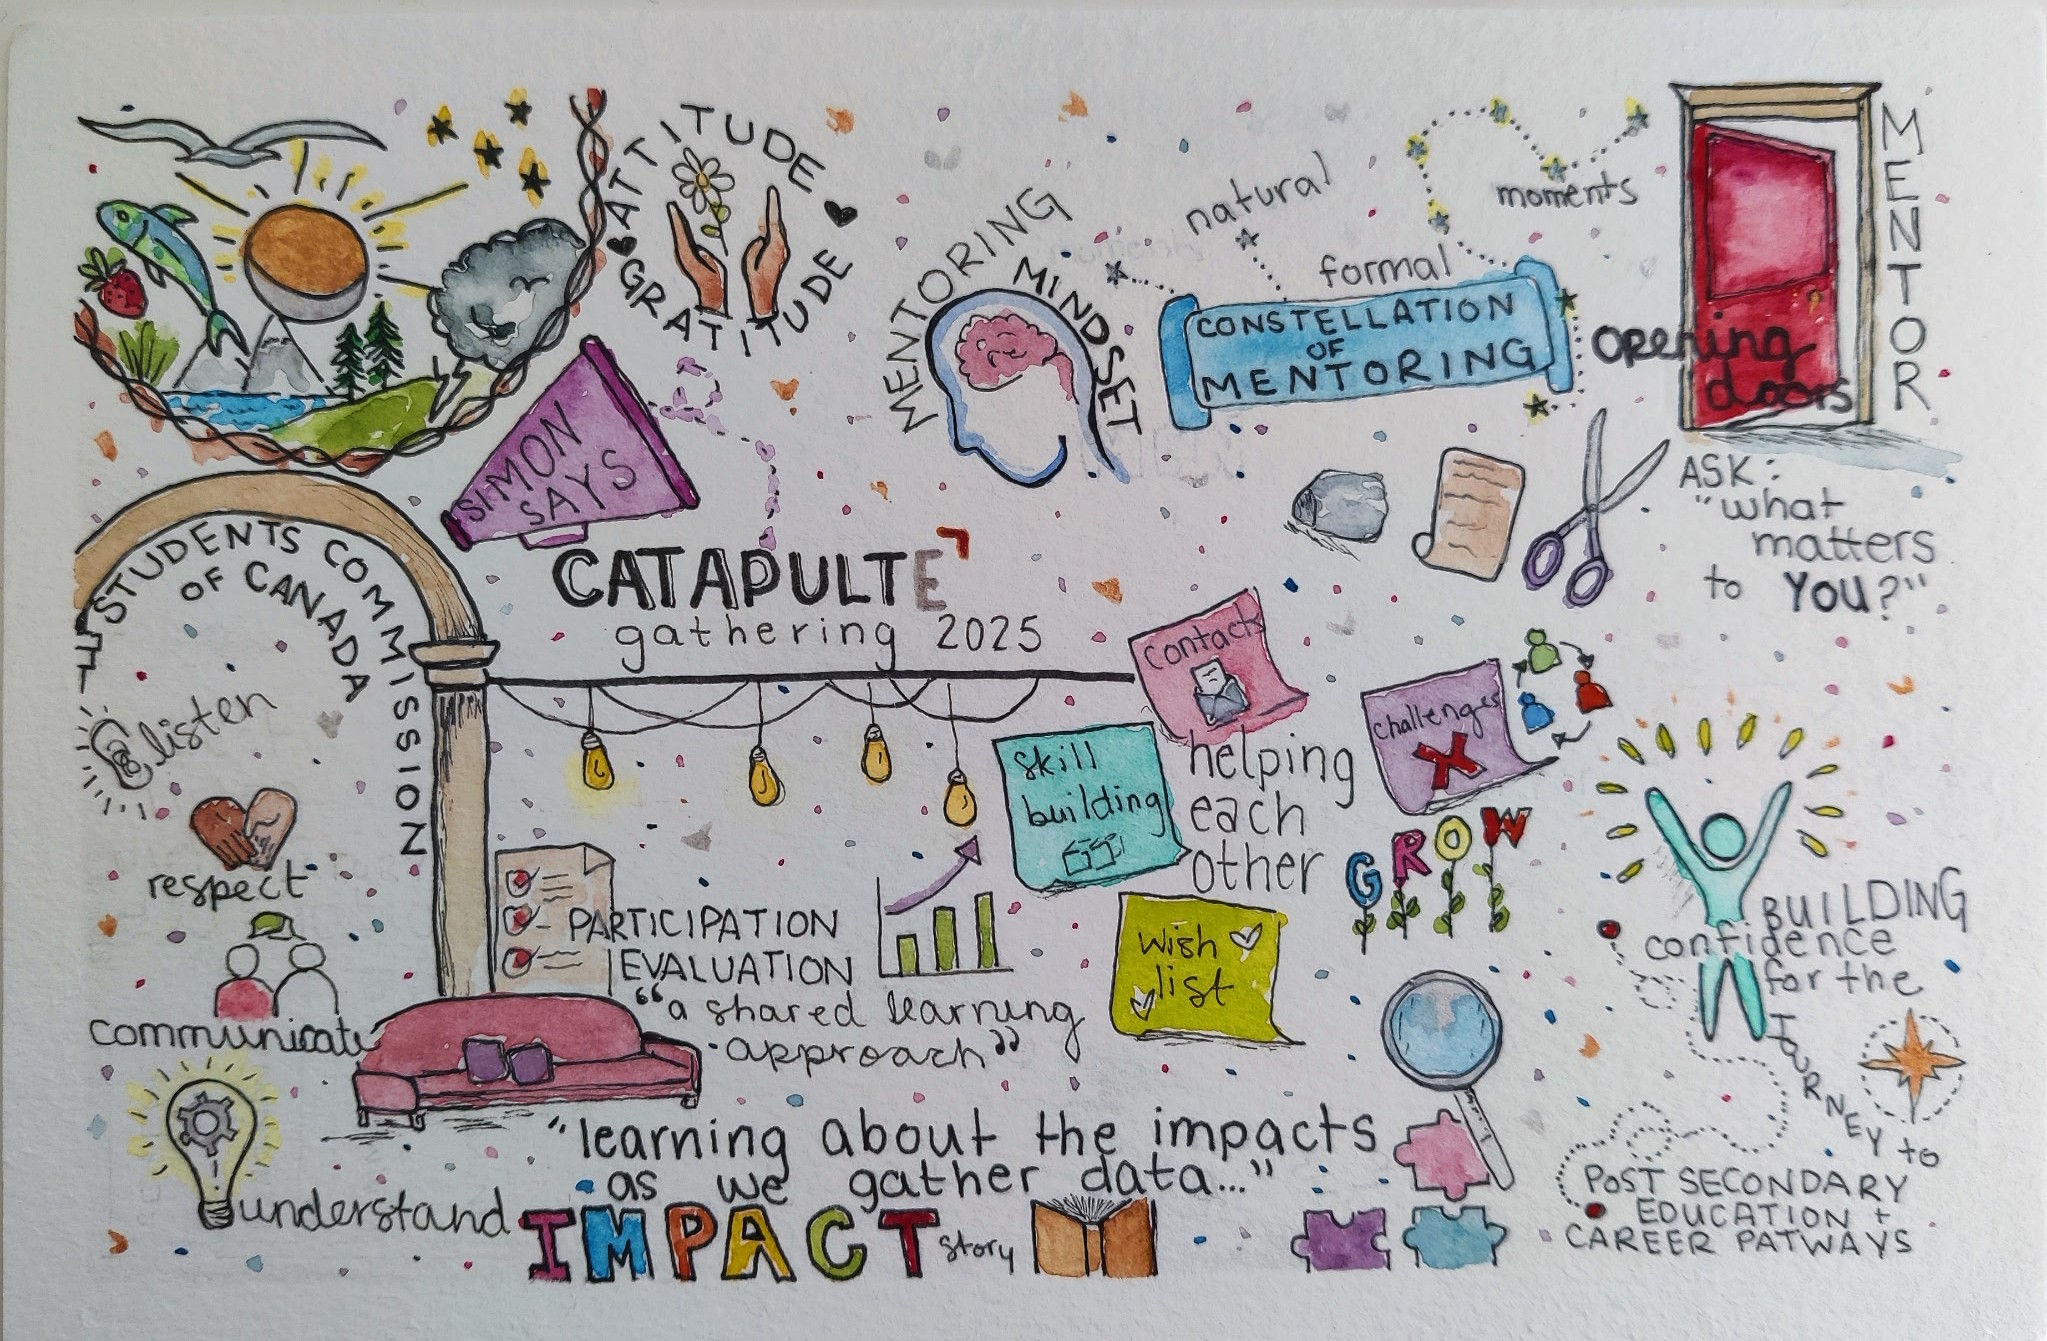 ATTITUDE
GRATITUDE
SIMON
SAYS
MENTORING
MINDSET
natural
moments
formal
CONSTELLATION
OF
MENTORING
MENTOR
opening
doors
ASK:
"what
matters
to YOU?"
CATAPULTE
gathering 2025
STUDENTS COMMISSION
OF CANADA
listen
respect
communicate
understand
PARTICIPATION
EVALUATION
"a shared learning
approach"
contacts
challenges
skill
building
wish
list
helping
each
other
GROW
BUILDING
confidence
for the
JOURNEY to
POST SECONDARY
EDUCATION +
CAREER PATWAYS
"learning about the impacts
as we gather data..."
IMPACT story